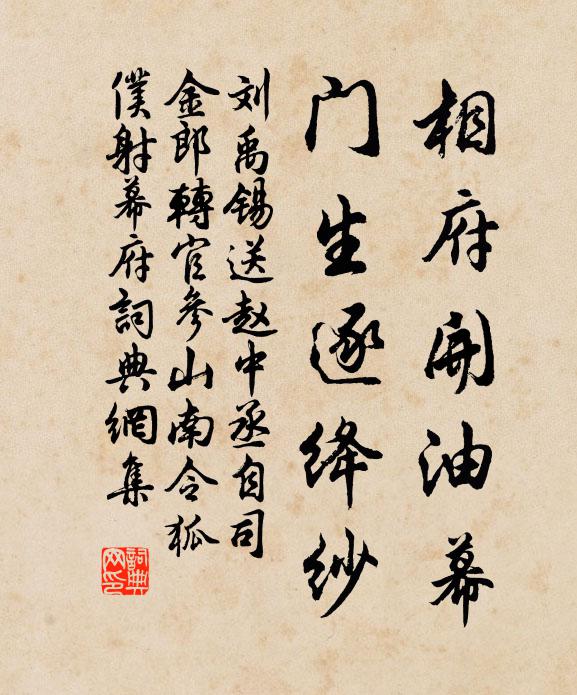 相府開油幕
门生逐绛纱
刘禹锡送赵中丞自司
金郎轉官參山南令狐
僕射幕府詞典網集
詞典网印